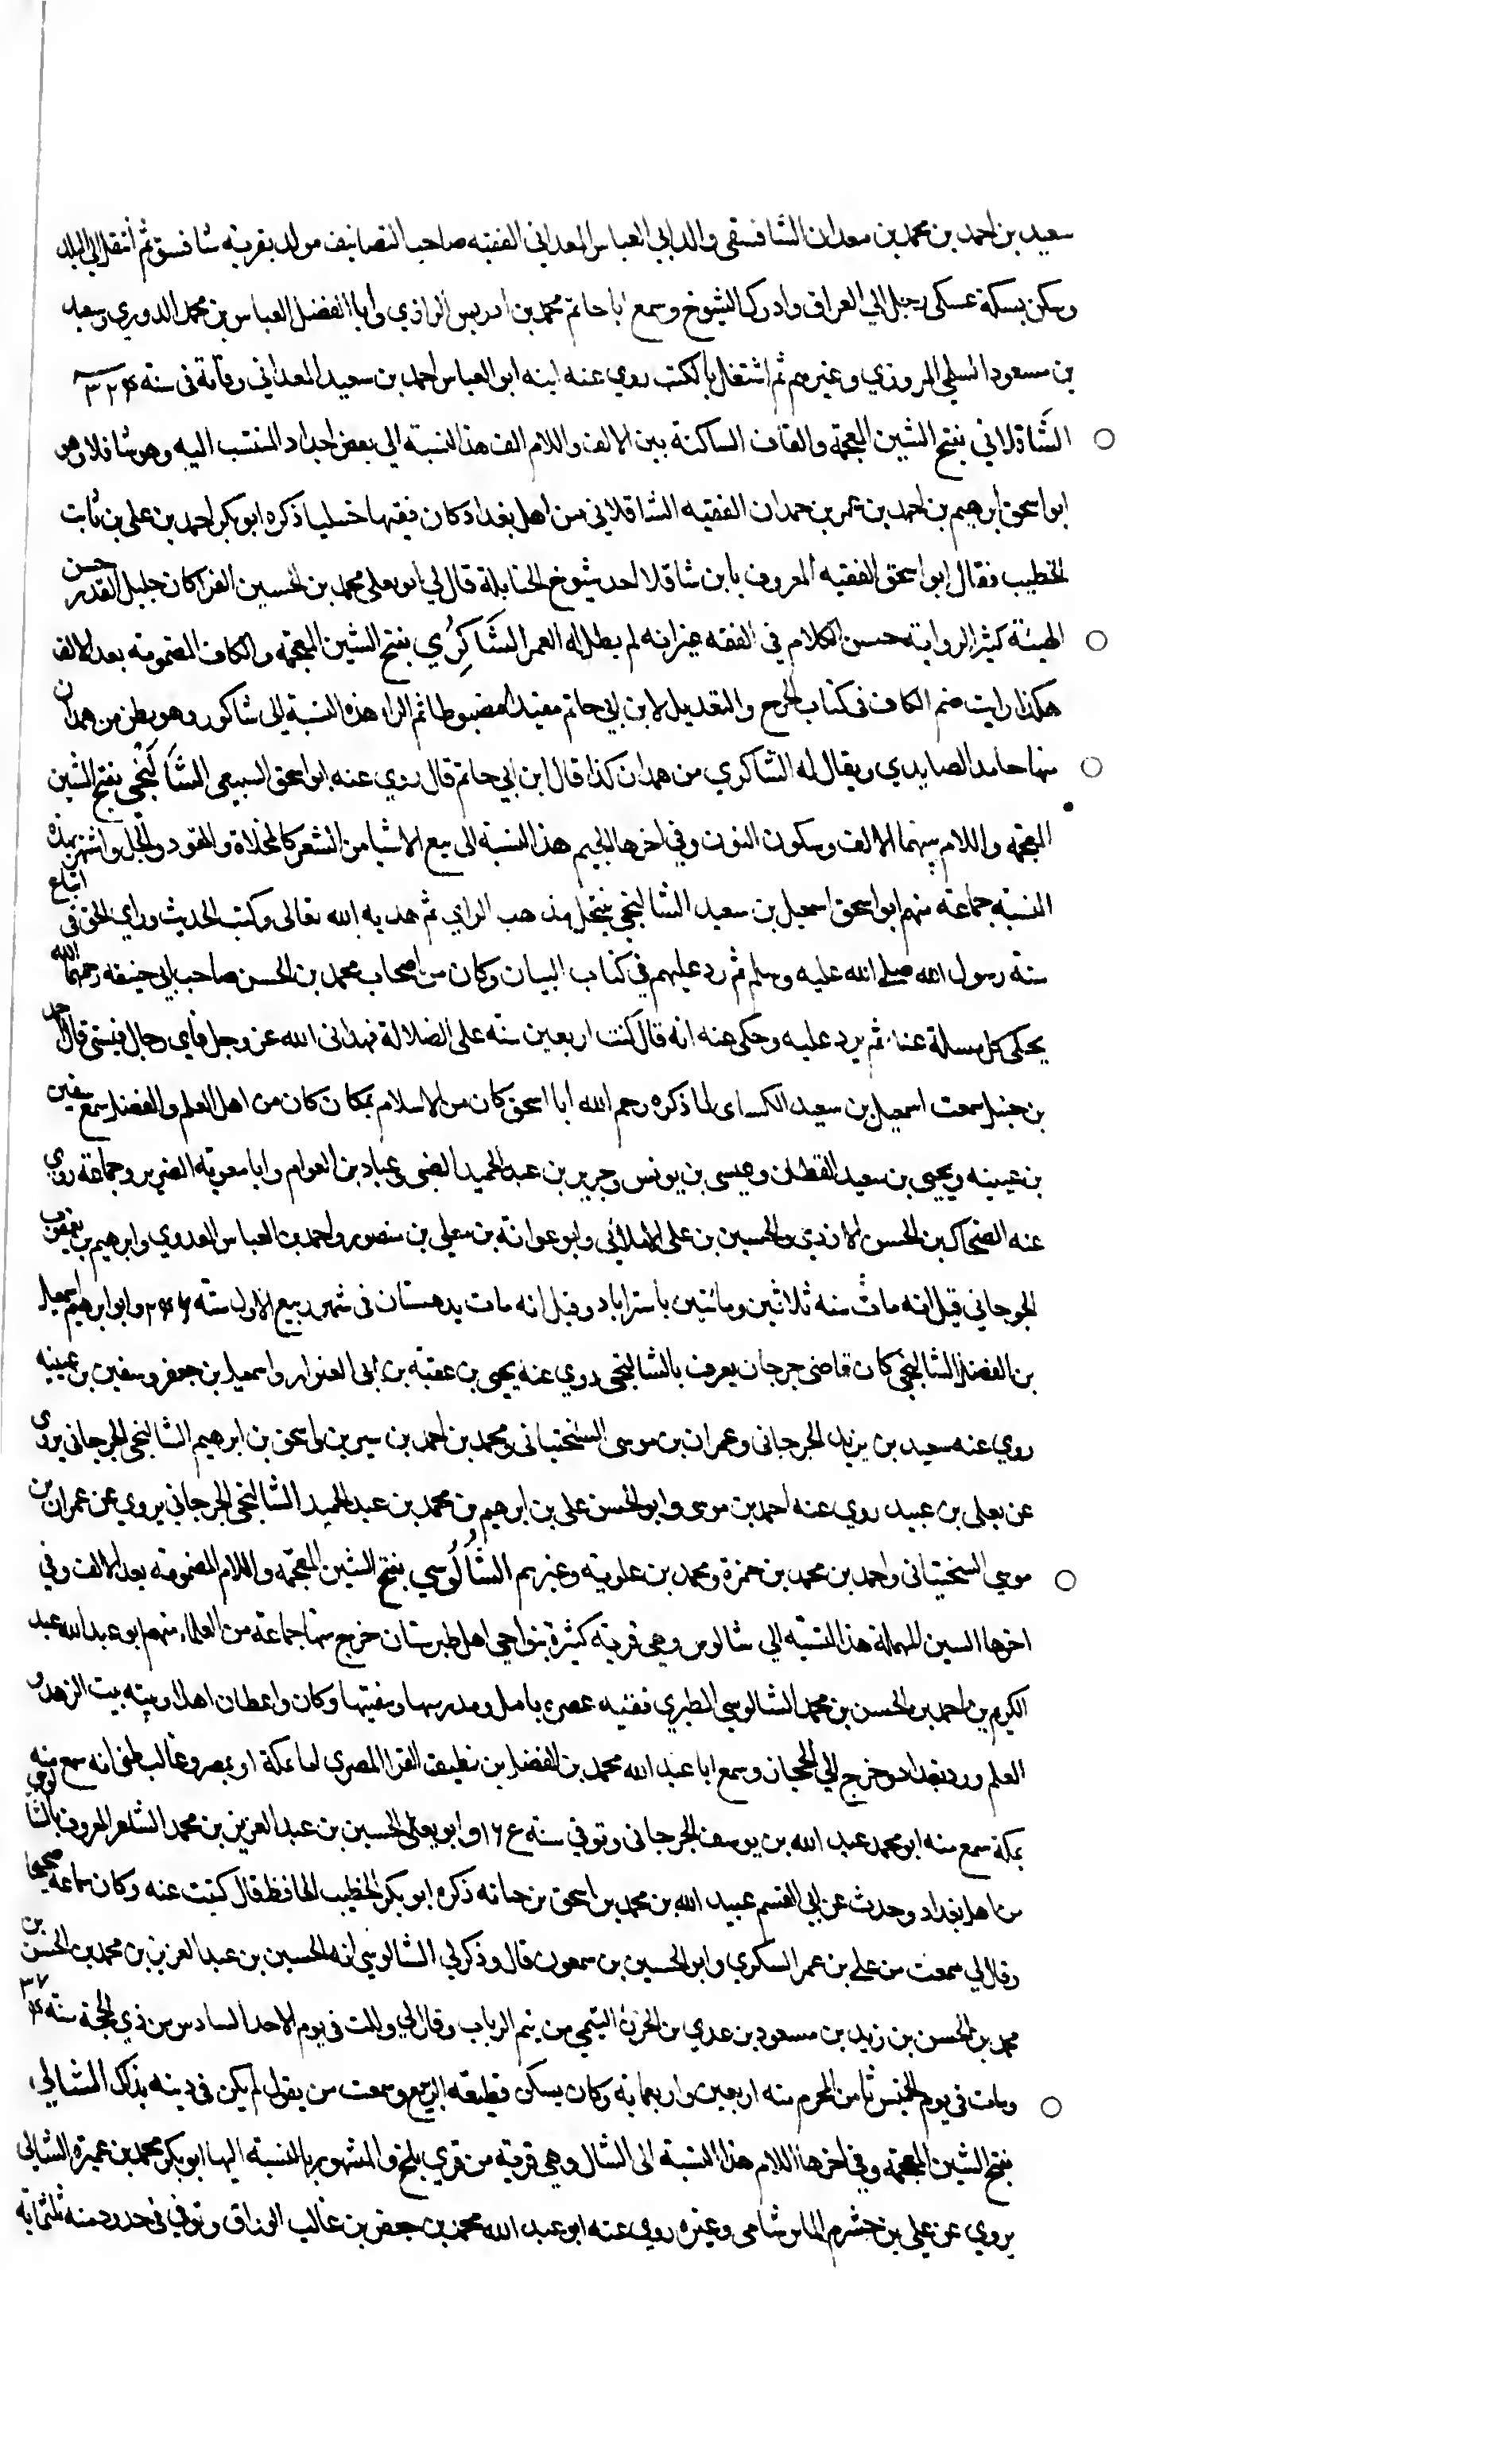 سعيد بن احمد بن محمد بن معدان الشافسقى والد ابي العباس المعدانى الفقيه صاحب التصانيف مولد بقرية شافسق ثم انتقل الى البلد
وسكن بسكة عسكى رحل الي العراق وادرك الشيوخ وسمع ابا حاتم محمد بن ادريس الرازي وابا الفضل العباس بن محمد الدوري وسعيد
بن مسعود السلمي المروزي وغيرهم ثم اشتغل بالكتب روي عنه ابنه ابو العباس احمد بن سعيد المعداني وفاته فى سنة
الشَاقلاني بفتح الشين المعجمة والقاف الساكنة بين الالف واللام الف هذا النسبة الي بعض اجداد المنتسب اليه وهو شاقلا وهو
ابو اسحق ابرهيم بن احمد بن عمر بن حمدان الفقيه الشاقلاني من اهل بغداد كان فقيها حنبليا ذكره ابو بكر احمد بن على بن ثابت
الخطيب فقال ابو اسحق الفقيه المعروف بابن شاقلا احد شيوخ الحنابلة قال لي ابو يعلى محمد بن الحسين الفرا كان جليل القدر حسن
الهيئة كثير الرواية حسن الكلام في الفقه غير انه لم يطل له العمر الشَاكِرُي بفتح الشين المعجمة والكاف المضمومة بعد الالف
هكذا رايت ضم الكاف فى كتاب الجرح والتعديل لابن ابي حاتم مقيدا مضبوطا ثم الراء هذه النسبة الى شاكور وهو بطن من همدان
منها حامد الصايدي ويقال له الشاكري من همدان كذا قال ابن ابي حاتم قال روي عنه ابو اسحق السبيعى الشَالَنْجُي بفتح الشين
المعجمة واللام بينهما الالف وسكون النون وفي اخرها الجيم هذا النسبة الى بيع الاشيا من الشعر كالمخلاة والمقود والجل واشتهر بهذه
النسبة جماعة منهم ابو اسحق اسمعيل بن سعيد الشالنجي ينتحل بمذهب الراي ثم هديه الله تعالى وكتب الحديث وراي الحق فى اتباع
سنة رسول الله صلى الله عليه وسلم ثم رد عليهم في كتاب البيان وكان من اصحاب محمد بن الحسن صاحب ابي حنيفه رحمهما الله
يحكى كل مسلة عنا ثم يرد عليه وحكى عنه انه قال كنت اربعين سنة على الضلالة فهدانى الله عز وجل فاي رجال فيستى قال احمد
بن حنبل سمعت اسمعيل بن سعيد الكساى لما ذكره رحم الله ابا اسحق كان من الاسلام بمكان كان من اهل العلم والفضل سمع سفين
بن عيينه ويحيى بن سعيد القطان وعيسى بن يونس وجرير بن عبد الحميد الضبى وعباد بن العوام وابا معوية الضرير وجماعة روي
عنه الضحاك بن الحسن الازدي والحسين بن على الاملائي وابو عوانة بن معلي بن منصور واحمد بن العباس العدوي وابرهيم بن يعقوب
الجوجاني قيل انه مات سنه ثلاثين ومائتين باستراباد وقيل انه مات بدهستان فى شهر ربيع الاول سنه وابو ابرهيم اسمعيل
بن الفضل الشالنجي كان قاضى جرجان يعرف بالشالنجى روي عنه يحيى بن عقبة بن ابى العيزار واسمعيل بن جعفر وسفين بن عيينه
روي عنه سعيد بن يزيد الجرجانى وعمران بن موسى السختيانى ومحمد بن احمد بن سيرين واسحق بن ابرهيم الشالنجي الجرجاني يروي
عن يعلى بن عبيد روي عنه احمد بن موسى وابو الحسن على بن ابرهيم بن محمد بن عبد الحميد الشالنجى الجرجاني يروي عن عمران بن
موسي السختيانى واحمد بن محمد بن حمزة ومحمد بن علوية وغيرهم الشَالُوسي بفتح الشين المعجمة واللام المضمومة بعد الالف وفي
اخرها السين المهملة هذا النسبة الي شالوس وهي قرية كثيرة بنواحي اهل طبرستان خرج منها جماعة من العلماء منهم ابو عبد الله عبد
الكريم بن احمد بن الحسن بن محمد الشالوسي الطبري فقيه عصره بامل ومدرسها ومفتيها وكان واعظان اهلا وبيته بيت الزهد و
العلم ورد بغداد وخرج الي الحجاز وسمع ابا عبد الله محمد بن الفضل بن نظيف الفرا المصري اما بمكة او بمصر وغالب ظني انه سمع منه
بمكة سمع منه ابو محمد عبد الله بن يوسف الجرجانى وتوفي سنه وابو يعلى الحسين بن عبد العزيز بن محمد الشاعر المعروف بالشالوسي
من اهل بغداد وحدث عن ابي القسم عبيد الله بن محمد بن اسحق بن حبابه ذكره ابو بكر الخطيب الحافظ قال كتبت عنه وكان سماعه صحيحا
وقال لي سمعت من علي بن عمر السكري وابو الحسين بن سمعون قال وذكر لي الشالوسي انه الحسين بن عبد العزيز بن محمد بن الحسن بن
محمد بن الحسن بن زيد بن مسعود بن عدي بن الحرث التيمي من تيم الرباب وقال لي ولدت في يوم الاحد السادس من ذي الحجة سنة
ومات فى يوم الخميس ثامن المحرم سنه اربعين واربعمايه وكان يسكن قطيعه الربيع وسمعت من يقول لم يكن فى دينه بذلك الشالي
بفتح الشين المعجمة وفي اخرها اللام هذا النسبة الى الشال وهي قرية من قري بلخ والمشهور بالنسبة اليها ابو بكر محمد بن عميرة الشالى
يروي عن علي بن خشرم وغيره روي عنه ابو عبد الله محمد بن جعفر بن غالب الوراق وتوفي فى حدود سنه ثلثمائة